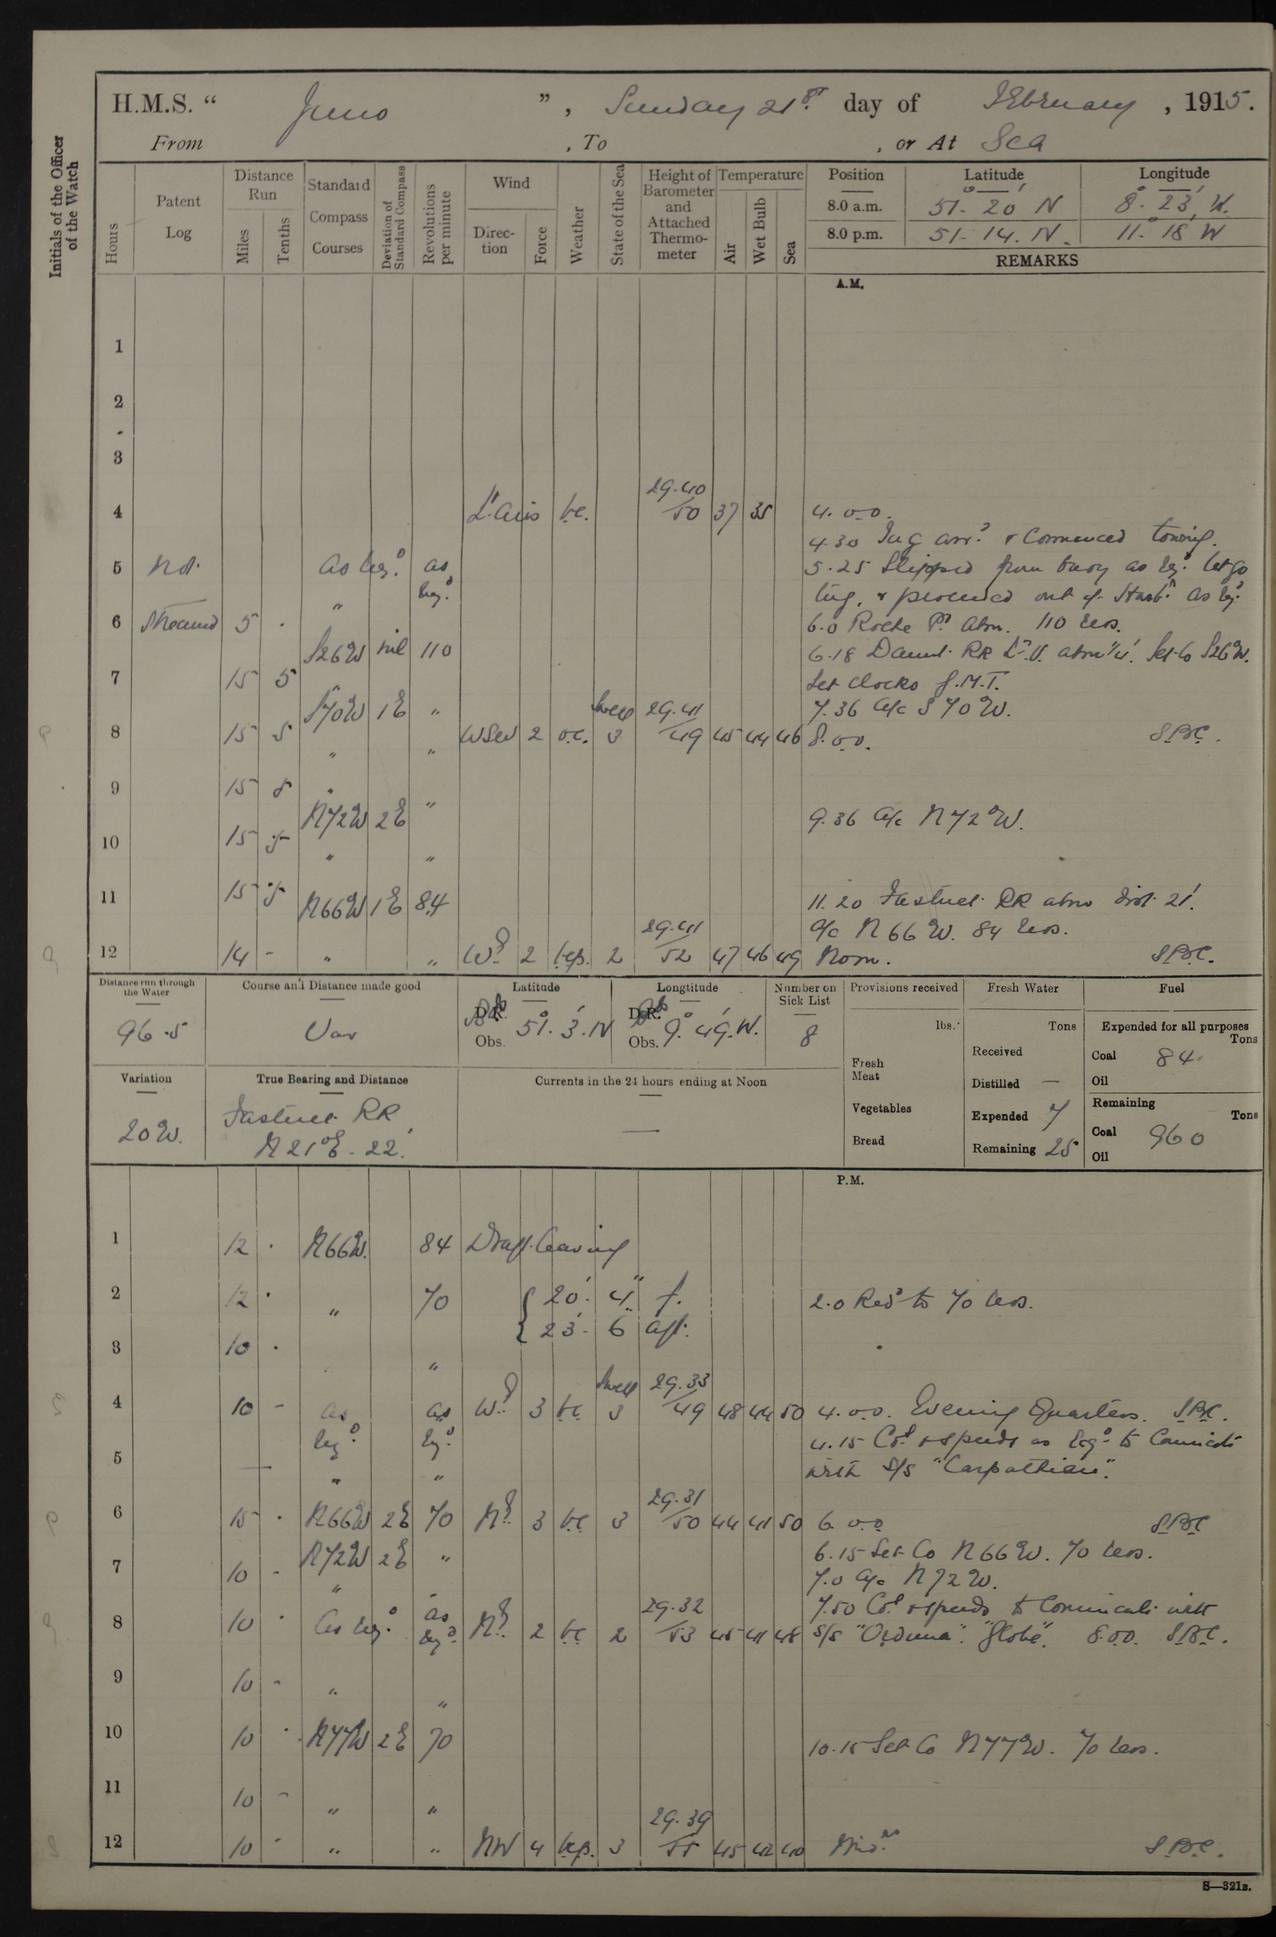 H.M.S. “ Juno ”, Sunday 21st day of February, 1915.
From , To , or At Sea
Initials of the Officer of the Watch
Hours
Patent Log
Distance Run
Miles
Tenths
Standard Compass Courses
Deviation of Standard Compass
Revolutions per minute
Wind
Direction
Force
Weather
State of the Sea
Height of Barometer and Attached Thermometer
Temperature
Air
Wet Bulb
Sea
Position Latitude Longitude
8.0 a.m. 51. 20 N 8. 23, W.
8.0 p.m. 51. 14. N. 11. 18 W
REMARKS
A.M.
1
2
3
29.40
4 Lt. airs b.c. 50 37 35 4. o.o.
4.30 Tug arrd & Commenced towing.
5 Not as reqd. as reqd. 5.25 Slipped from buoy as reqd. let go
tug, & proceeded out of Harbr. as reqd.
6 Streamed 5 . " 6.0 Roche Pt. abm. 110 revs.
S26W nil 110 6.18 Daunt RR L.V. abm Set Co S26W.
7 15 5 Set clocks G.M.T.
S70W 1E " Swell 29.41 7.36 a/c S 70 W.
8 15 5 " " WSW 2 o.c. 3 49 45 44 46 8.o.o. S.B.C.
9 15 5 "
N72W 2E " 9.36 a/c N 72 W.
10 15 5 " "
11 15 5 N66W 1E 84 11.20 Fastnet RR abm dist 21'.
29.41 a/c N 66 W. 84 revs.
12 14 - " " Wd 2 b.c.p. 2 52 47 46 49 Noon. S.B.C.
Distance run through the Water
96.5
Course and Distance made good
Var
Latitude
D.R.
Obs.
51. 3. N
Longtitude
D.R.
Obs.
9. 49. W.
Number on Sick List
8
Provisions received
lbs.
Fresh Meat
Vegetables
Bread
Fresh Water
Tons
Received
Distilled —
Expended 7
Remaining 25
Fuel
Expended for all purposes
Tons
Coal 84
Oil
Remaining
Tons
Coal 960
Oil
Variation
20W.
True Bearing and Distance
Fastnet RR
N 21° E - 22.
Currents in the 24 hours ending at Noon
—
P.M.
1 12 . N66W. 84 Draft leaving
2 12 . " 70 20' 4" f. 2.0 Redd to 70 revs.
23' - 6 aft.
3 10 . "
Swell 29.33
4 10 - as reqd. as reqd. Wd 3 b.c. 3 49 48 44 50 4.o.o. Evening Quarters. S.B.C.
4.15 Co. & speeds as reqd. to Communicate
5 — " " with S/S "Carpathian".
29.31
6 15 . N66W 2E 70 Nd 3 b.c. 3 50 44 41 50 6.o.o S.B.C
N72W 2E " 6.15 Set Co N66W. 70 revs.
7 10 - " 7.0 a/c N72W.
29.32 7.50 Co. & speeds to Communicate with
8 10 . as reqd. as reqd. Nd 2 b.c 2 53 45 41 48 S/S "Orduna". "Globe". 8.o.o. S.B.C.
9 10 - " "
10 10 . N77W 2E 70 10.15 Set Co N77W. 70 revs.
11 10 - " "
29.39
12 10 . " " NW 4 b.c.p. 3 55 45 42 40 Midt. S.B.C.
S—321B.